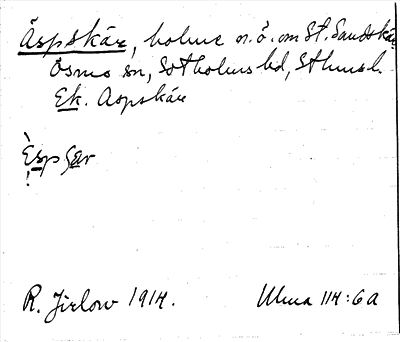 Äspskär, holme n.ö. om St. Sandskär
Ösmo sn, Sotholms hd, Sthmsl.
Ek. Aspskär
R. Jirlow 1914.
Ulma 114:6a